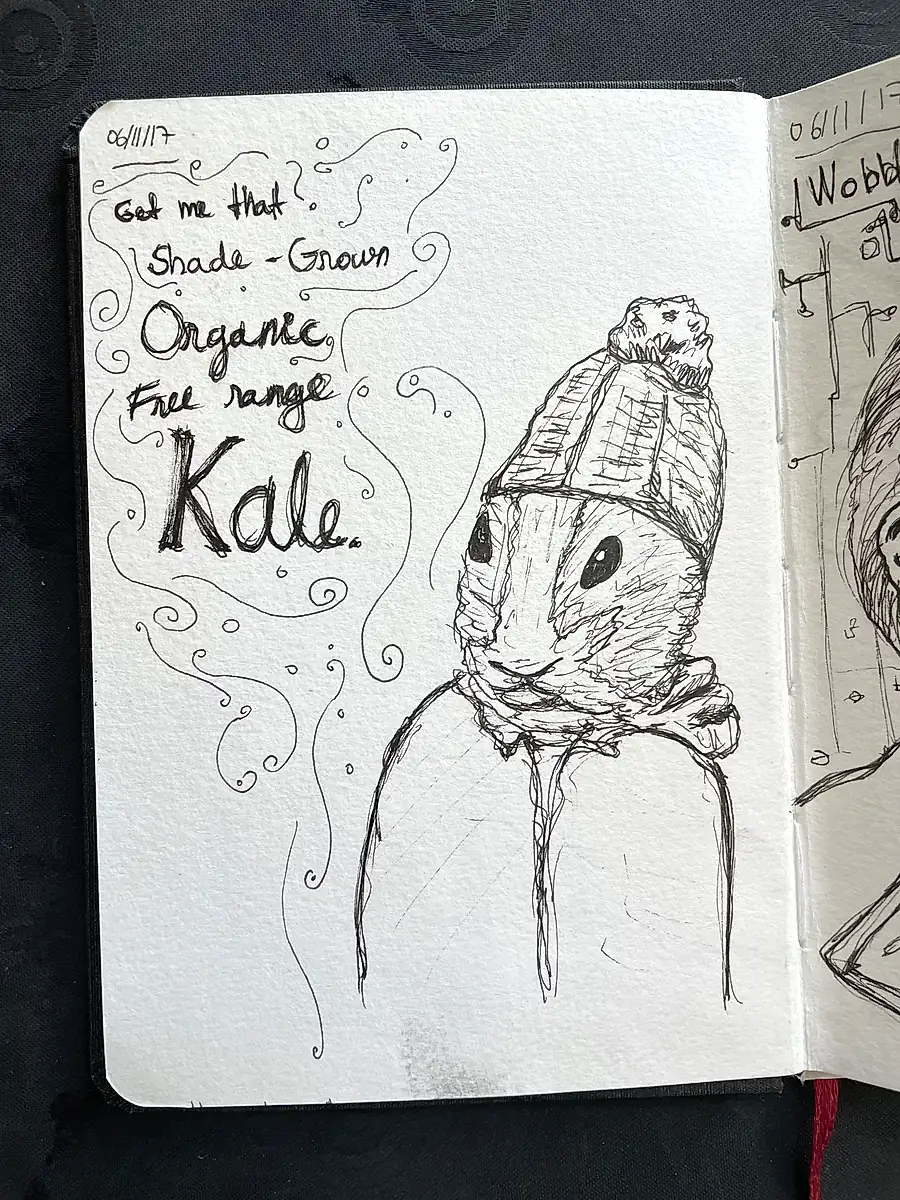 06/11/17
Get me that
Shade-Grown
Organic
Free range
Kale.
06/11/17
Wobb